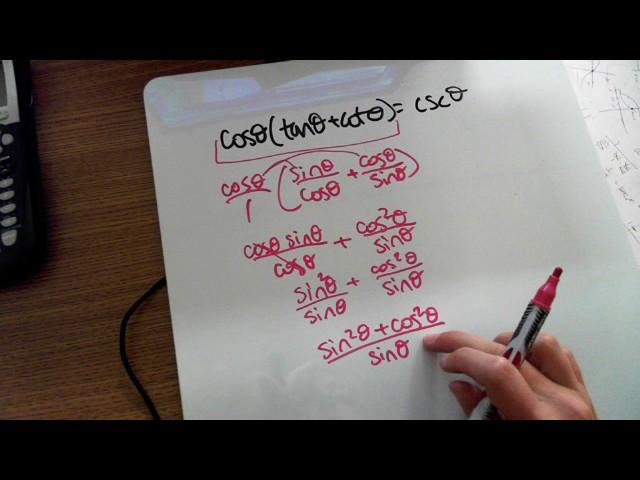 cosθ(tanθ+cotθ)=cscθ
cosθ/1 (sinθ/cosθ + cosθ/sinθ)
cosθ sinθ/cosθ + cos²θ/sinθ
sin²θ/sinθ + cos²θ/sinθ
sin²θ+cos²θ/sinθ